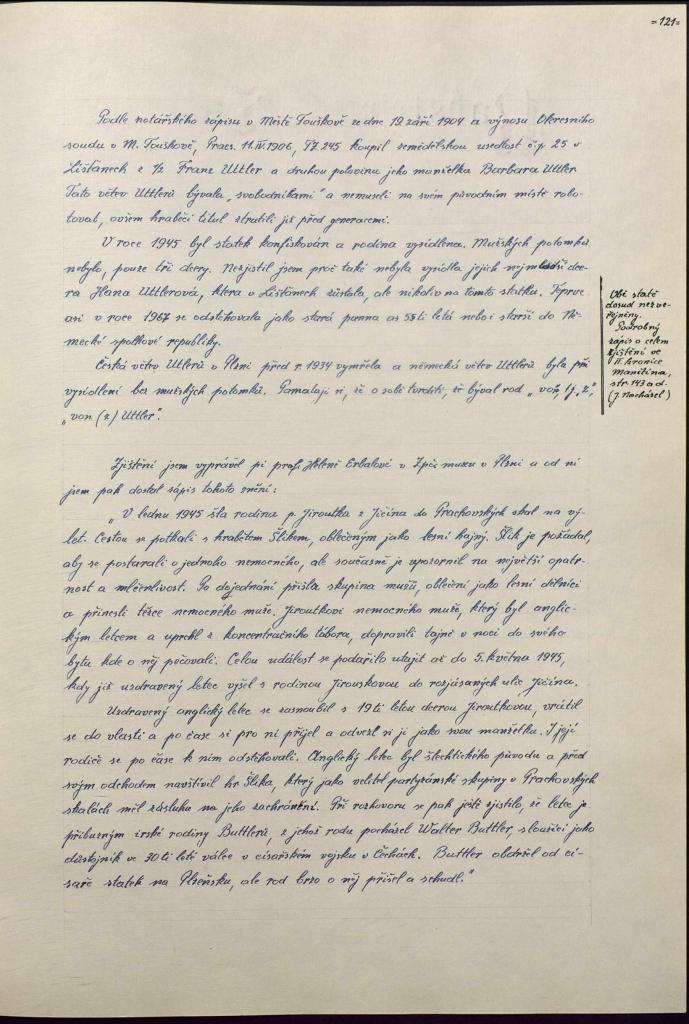 =121=
Podle notářského zápisu v Městě Touškově ze dne 19. září 1904 a výnosu Okresního
soudu v M. Touškově, Praes. 11.IV.1906, TZ 245 koupil zemědělskou usedlost č.p. 25 v
Lišťanech z 1/2 Franz Uttler a druhou polovinu jeho manželka Barbara Uttler
Tato větev Uttlerů bývala „svobodníkami" a nemuseli na svém původním místě robo-
tovat, ovšem hraběcí titul ztratili již před generacemi.
V roce 1945 byl statek konfiskován a rodina vysídlena. Mužských potomků
nebylo, pouze tři dcery. Nezjistil jsem proč také nebyla vysídla jejich nejmladší dce-
ra Hana Uttlerová, která v Lišťanech zůstala, ale nikoliv na tomto statku. Teprve
asi v roce 1967 se odstěhovala jako stará panna as 55ti letá nebo i starší do Ně-
mecké spolkové republiky.
Česká větev Utlerů v Plzni před r. 1934 vymřela a německá větev Uttlerů byla při
vysídlení bez mužských potomků. Pamatuji si, že o sobě tvrdili, že býval rod „von, tj. z",
„von (z) Uttler".
Obě statě
dosud nezve-
řejněny.
Podrobný
zápis o celém
zjištění ve
II. kronice
Manětína,
str. 143 a d.
(J. Nacházel)
Zjištění jsem vyprávěl pí prof. Heleně Erbalové v Zpč. muzeu v Plzni a od ní
jsem pak dostal zápis tohoto znění:
„V lednu 1945 šla rodina p. Jiroutka z Jičína do Prachovských skal na vý-
let. Cestou se potkali s hrabětem Šlikem, oblečeným jako lesní hajný. Šlik je požádal,
aby se postarali o jednoho nemocného, ale současně je upozornil na největší opatr-
nost a mlčenlivost. Po dojednání přišla skupina mužů, oblečení jako lesní dělníci
a přinesli těžce nemocného muže. Jiroutkovi nemocného muže, který byl anglic-
kým letcem a uprchl z koncentračního tábora, dopravili tajně v noci do svého
bytu kde o něj pečovali. Celou událost se podařilo utajit až do 5. května 1945,
kdy již uzdravený letec vyšel s rodinou Jirouskovou do rozjásaných ulic Jičína.
Uzdravený anglický letec se zasnoubil s 19ti letou dcerou Jiroutkovou, vrátil
se do vlasti a po čase si pro ni přijel a odvezl si je jako svou manželku. I její
rodiče se po čase k nim odstěhovali. Anglický letec byl šlechtického původu a před
svým odchodem navštívil hr. Šlika, který jako velitel partyzánské skupiny v Prachovských
skalách měl zásluhu na jeho zachránění. Při rozhovoru se pak ještě zjistilo, že letec je
příbuzným irské rodiny Buttlerů, z jehož rodu pocházel Walter Buttler, sloužící jako
důstojník ve 30ti leté válce v císařském vojsku v Čechách. Buttler obdržel od cí-
saře statek na Plzeňsku, ale rod brzo o něj přišel a schudl."